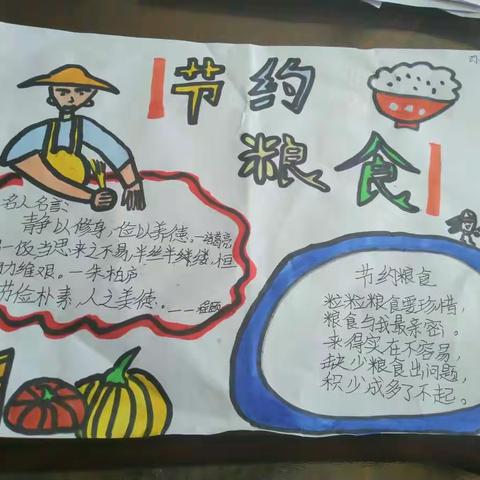 节约
粮食
名人名言:
静以修身,俭以养德。——诸葛亮
一饭当思来之不易,半丝半缕,恒
力维艰。——朱柏庐
节俭朴素,人之美德。
节约粮食
粒粒粮食要珍惜,
粮食与我最亲密。
来得实在不容易,
缺少粮食出问题,
积少成多了不起。